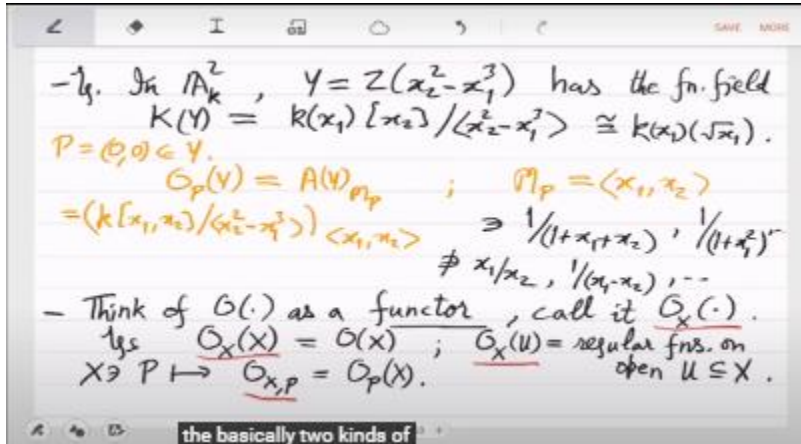 SAVE MORE
- Eg. In A²_k, Y = Z(x₂² - x₁³) has the fn. field
K(Y) = k(x₁)[x₂]/<x₂² - x₁³> ≅ k(x₁)(√x₁).
P = (0,0) ∈ Y.
O_P(Y) = A(Y)_{m_P} ; m_P = <x₁, x₂>
= (k[x₁, x₂]/<x₂² - x₁³>)_{<x₁, x₂>} ∋ 1/(1+x₁+x₂), 1/(1+x₁²)
∌ x₁/x₂, 1/(x₁-x₂), ...
- Think of O(·) as a functor, call it O_X(·).
Egs O_X(X) = O(X) ; O_X(U) = regular fns. on
X ∋ P ↦ O_{X,P} = O_P(X). open U ⊆ X.
the basically two kinds of